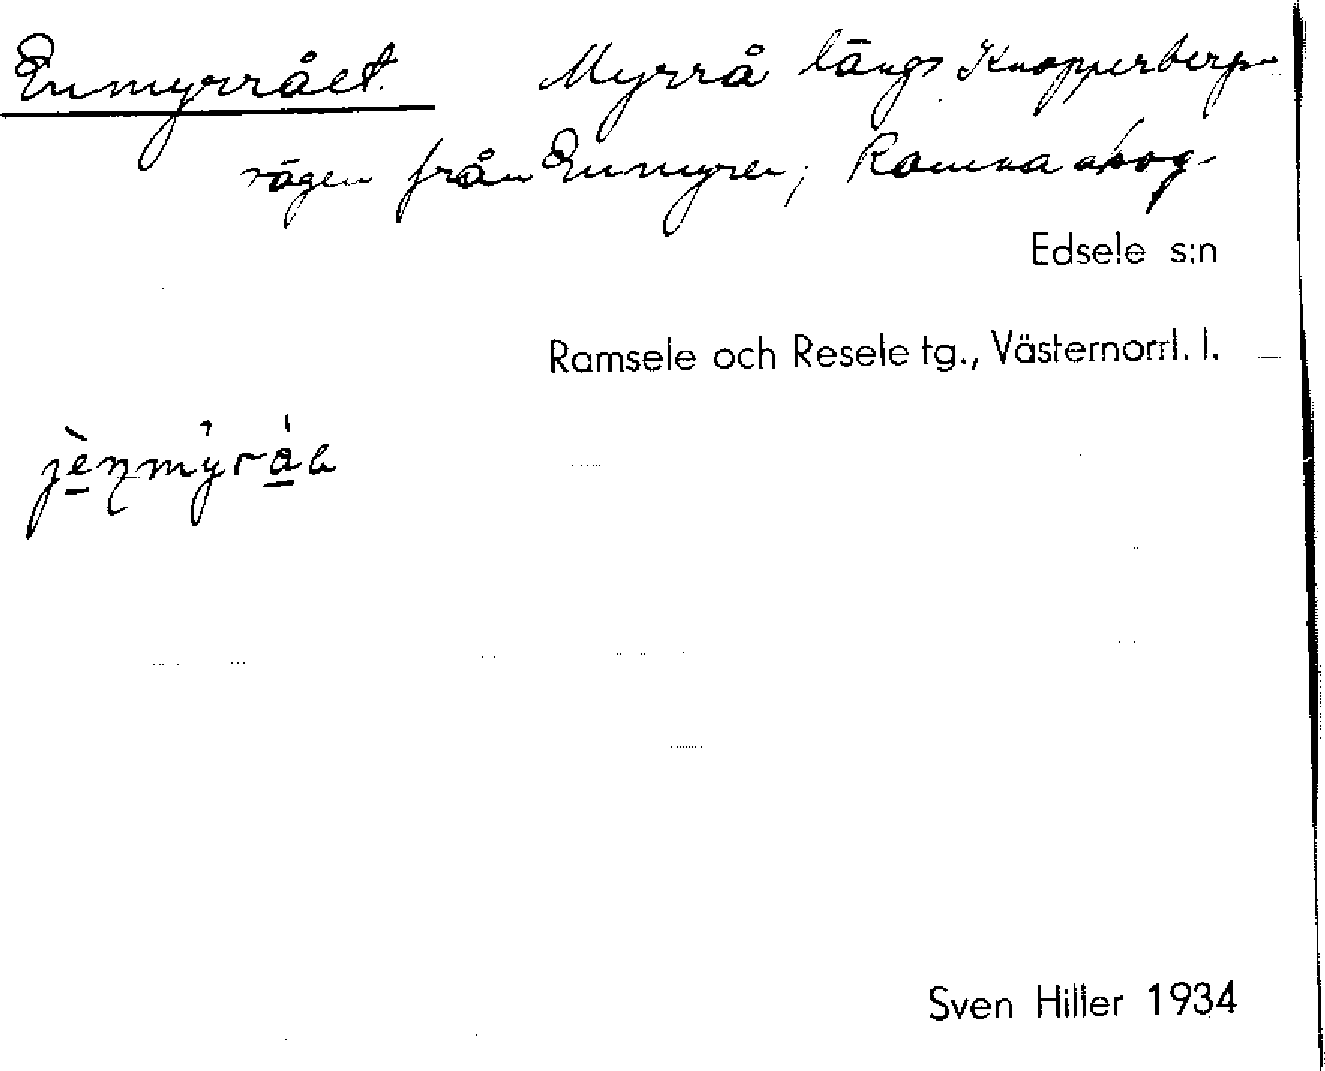 Enmyrrået. Myrrå längs Knopperbergs-
vägen från Enmyren; Ramna skog
Edsele s:n
Ramsele och Resele tg., Västernorrl. l.
Sven Hiller 1934